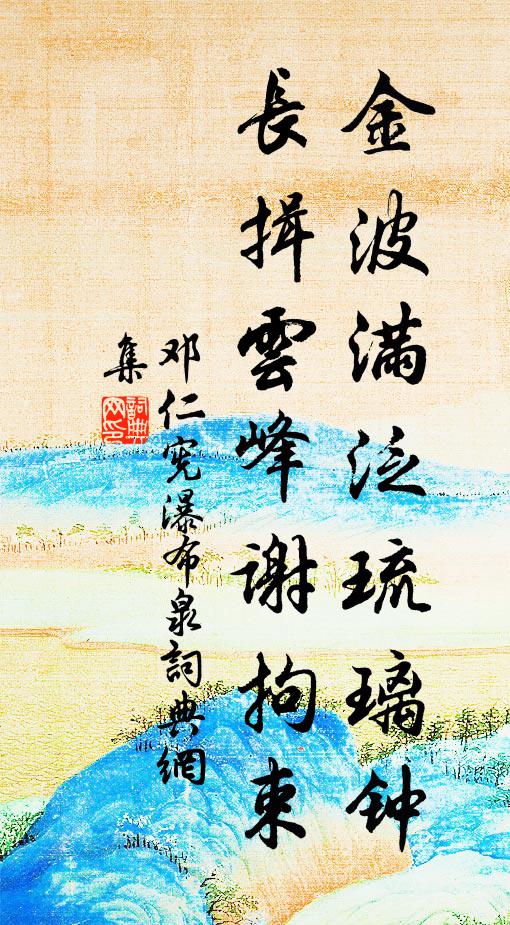 金波满泛琉璃钟
長揖雲峰謝拘束
邓仁宪瀑布泉詞典網
集
詞典网印